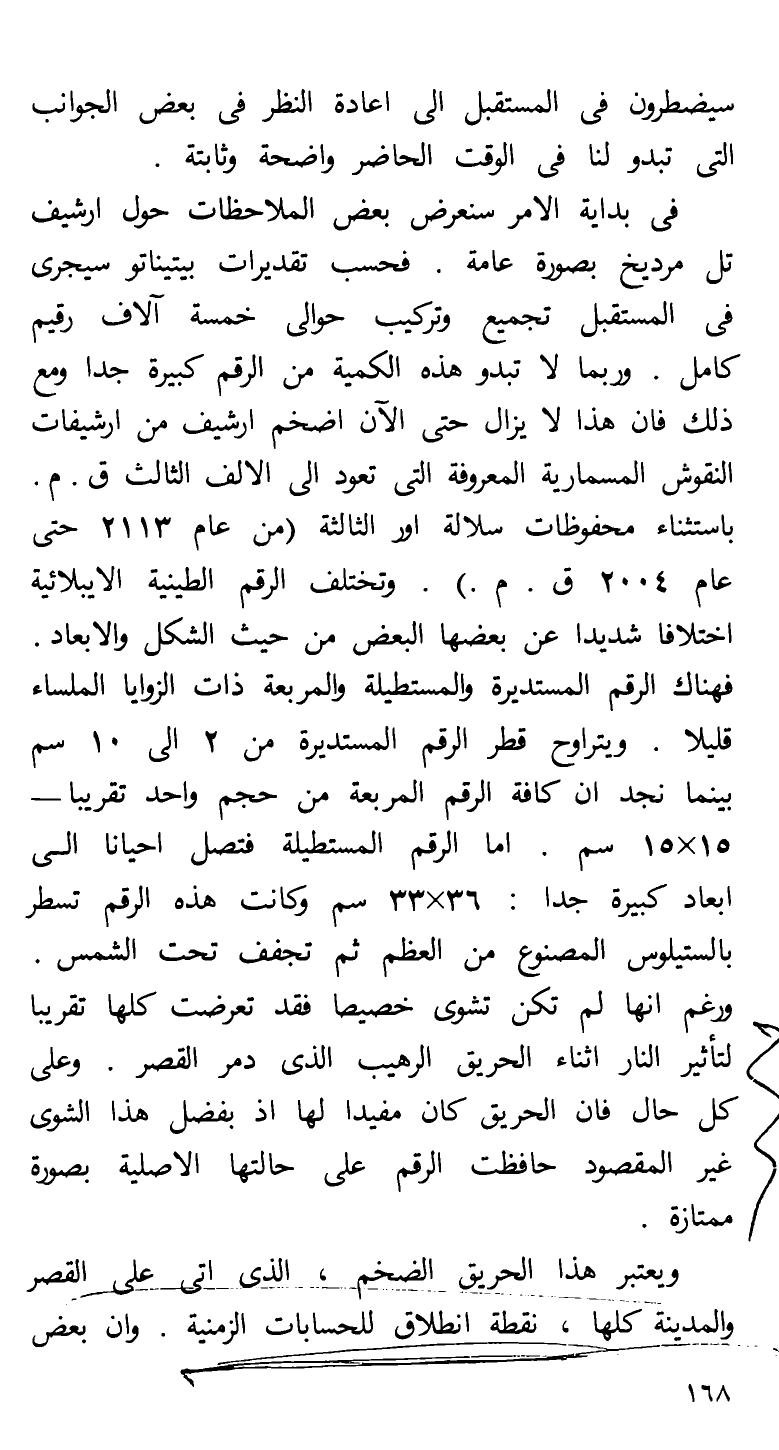 سيضطرون فى المستقبل الى اعادة النظر فى بعض الجوانب
التى تبدو لنا فى الوقت الحاضر واضحة وثابتة .
فى بداية الامر سنعرض بعض الملاحظات حول ارشيف
تل مرديخ بصورة عامة . فحسب تقديرات بيتيناتو سيجرى
فى المستقبل تجميع وتركيب حوالى خمسة آلاف رقيم
كامل . وربما لا تبدو هذه الكمية من الرقم كبيرة جدا ومع
ذلك فان هذا لا يزال حتى الآن اضخم ارشيف من ارشيفات
النقوش المسمارية المعروفة التى تعود الى الالف الثالث ق . م .
باستثناء محفوظات سلالة اور الثالثة (من عام ٢١١٣ حتى
عام ٢٠٠٤ ق . م .) . وتختلف الرقم الطينية الايبلائية
اختلافا شديدا عن بعضها البعض من حيث الشكل والابعاد .
فهناك الرقم المستديرة والمستطيلة والمربعة ذات الزوايا الملساء
قليلا . ويتراوح قطر الرقم المستديرة من ٢ الى ١٠ سم
بينما نجد ان كافة الرقم المربعة من حجم واحد تقريبا —
١٥×١٥ سم . اما الرقم المستطيلة فتصل احيانا الـى
ابعاد كبيرة جدا : ٣٦×٣٣ سم وكانت هذه الرقم تسطر
بالستيلوس المصنوع من العظم ثم تجفف تحت الشمس .
ورغم انها لم تكن تشوى خصيصا فقد تعرضت كلها تقريبا
لتأثير النار اثناء الحريق الرهيب الذى دمر القصر . وعلى
كل حال فان الحريق كان مفيدا لها اذ بفضل هذا الشوى
غير المقصود حافظت الرقم على حالتها الاصلية بصورة
ممتازة .
ويعتبر هذا الحريق الضخم ، الذى اتى على القصر
والمدينة كلها ، نقطة انطلاق للحسابات الزمنية . وان بعض
١٦٨